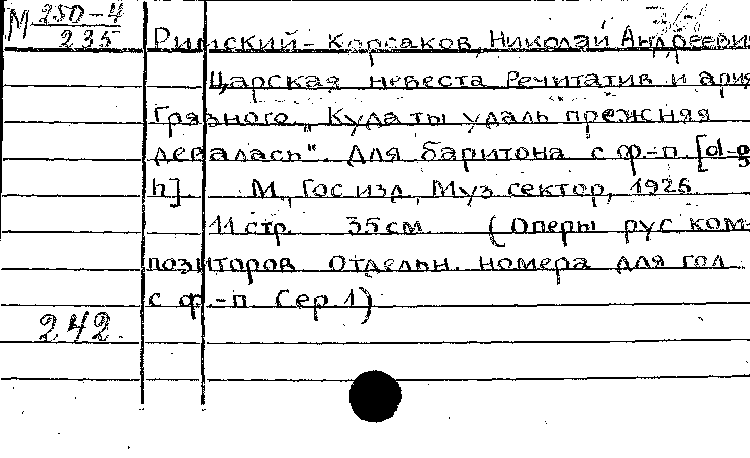 М 250-4
235
Римский-Корсаков, Николай Андрееви
Царская невеста Речитатив и ария
Грязного „Куда ты удаль прежняя
девалась". Для баритона с ф-п. [d-g
h]. М., Гос изд, Муз сектор,
11 стр. 35 см. (Оперы рус ком-
позиторов Отдельн. номера для гол
с ф.-п. Сер. 1)
242.